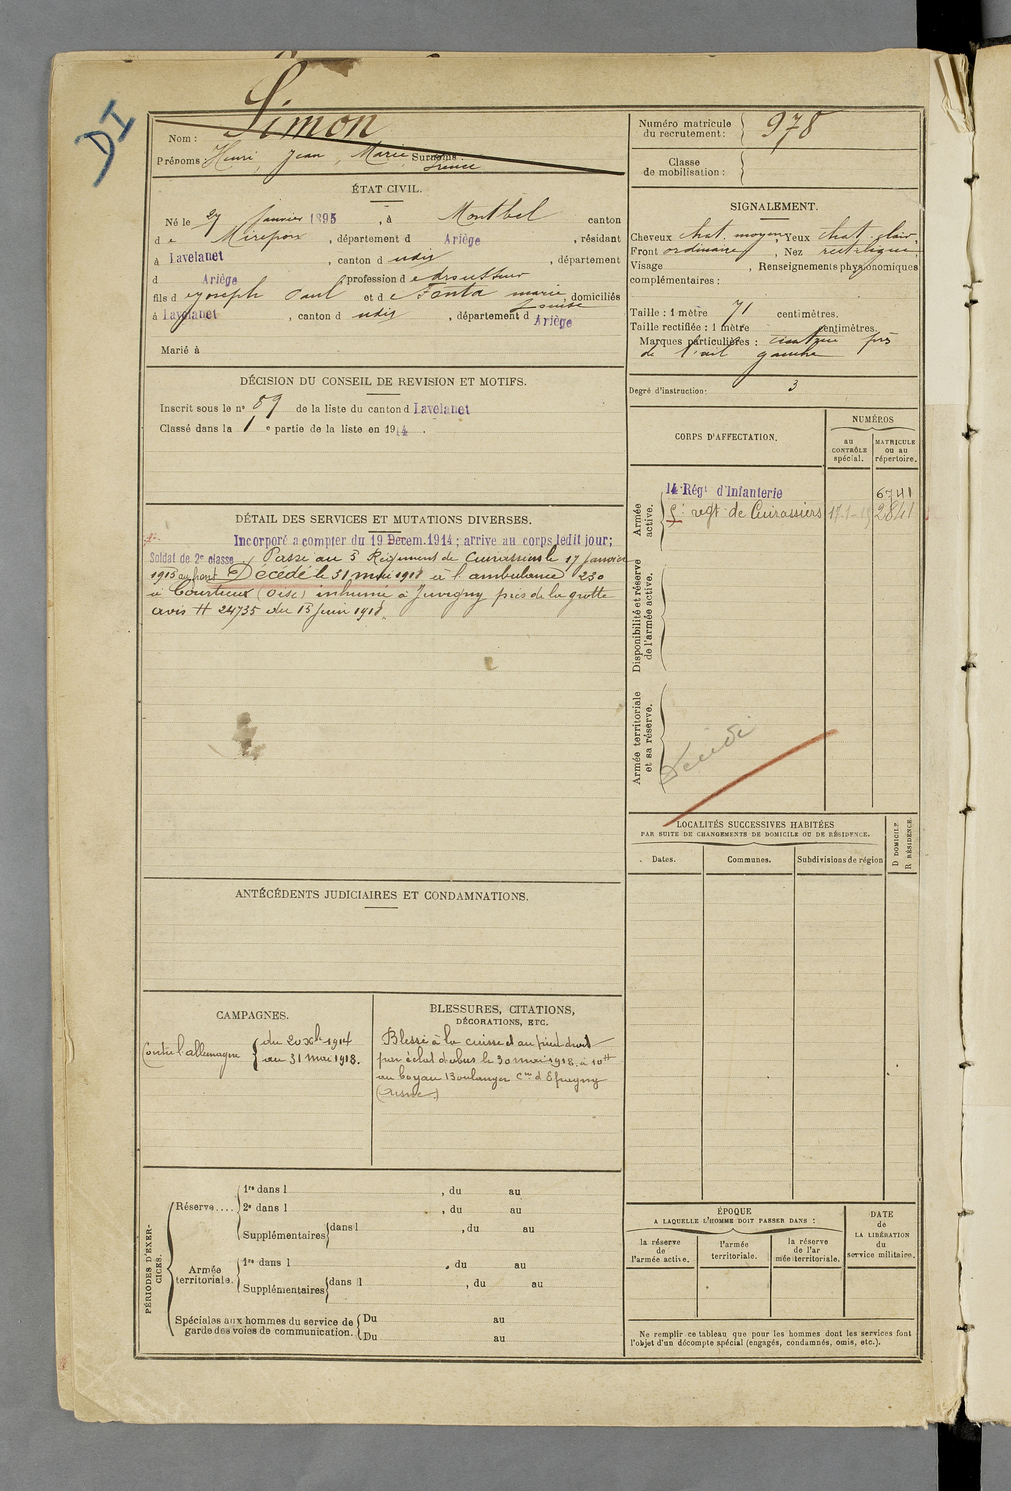 DI
Simon
Nom :
Prénoms : Henri, Jean, Marie Surnoms :
ÉTAT CIVIL.
Né le 27 Janvier 1895, à Montbel canton
d e Mirepoix, département d Ariège, résidant
à Lavelanet, canton d udit, département
d Ariège, profession d
fils d e Joseph Paul et d e Fonta marie Louise, domiciliés
à Lavelanet, canton d udit, département d Ariège
Marié à
DÉCISION DU CONSEIL DE REVISION ET MOTIFS.
Inscrit sous le n° 89 de la liste du canton d Lavelanet
Classé dans la 1 e partie de la liste en 1914.
DÉTAIL DES SERVICES ET MUTATIONS DIVERSES.
Incorporé a compter du 19 Decem.1914; arrive au corps ledit jour;
Soldat de 2e classe. Passé au 5 Régiment de Cuirassiers le 17 Janvier
1915 Décédé le 31 mai 1918 à l'ambulance 230
à Courtieux (Oise) inhumé à Juvigny près de la grotte
avis # 24735 du 13 Juin 1918.
ANTÉCÉDENTS JUDICIAIRES ET CONDAMNATIONS.
CAMPAGNES.
Contre l'allemagne { du 20 Xbre 1914
au 31 mai 1918.
BLESSURES, CITATIONS,
DÉCORATIONS, ETC.
Blessé à la cuisse et au pied droit
par éclat d'obus le 30 mai 1918 à 10H
au Boyau Boulanger Cne d'Epagny
(Aisne)
PÉRIODES D'EXERCICES.
Réserve....
1re dans l , du au
2e dans l , du au
Supplémentaires { dans l , du au
Armée
territoriale.
1re dans l , du au
Supplémentaires { dans l , du au
Spéciales aux hommes du service de
garde des voies de communication.
Du au
Du au
Numéro matricule
du recrutement : 978
Classe
de mobilisation :
SIGNALEMENT.
Cheveux chat. moyens, Yeux chat. clair,
Front ordinaire, Nez rectiligne,
Visage , Renseignements physionomiques
complémentaires :
Taille : 1 mètre 71 centimètres.
Taille rectifiée : 1 mètre centimètres.
Marques particulières : cicatrice près
de l'œil gauche
Degré d'instruction : 3
CORPS D'AFFECTATION.
NUMÉROS
au
CONTRÔLE
spécial.
MATRICULE
ou au
répertoire.
Armée
active.
14e Régt d'Infanterie 6741
5e regt de Cuirassiers 17-1-15 2841
Disponibilité et réserve
de l'armée active.
Armée territoriale
et sa réserve.
LOCALITÉS SUCCESSIVES HABITÉES
PAR SUITE DE CHANGEMENTS DE DOMICILE OU DE RÉSIDENCE.
Dates.
Communes.
Subdivisions de région
D DOMICILE
R RÉSIDENCE.
ÉPOQUE
A LAQUELLE L'HOMME DOIT PASSER DANS :
la réserve
de
l'armée active.
l'armée
territoriale.
la réserve
de l'ar
mée territoriale.
DATE
de
LA LIBÉRATION
du
service militaire.
Ne remplir ce tableau que pour les hommes dont les services font
l'objet d'un décompte spécial (engagés, condamnés, omis, etc.).